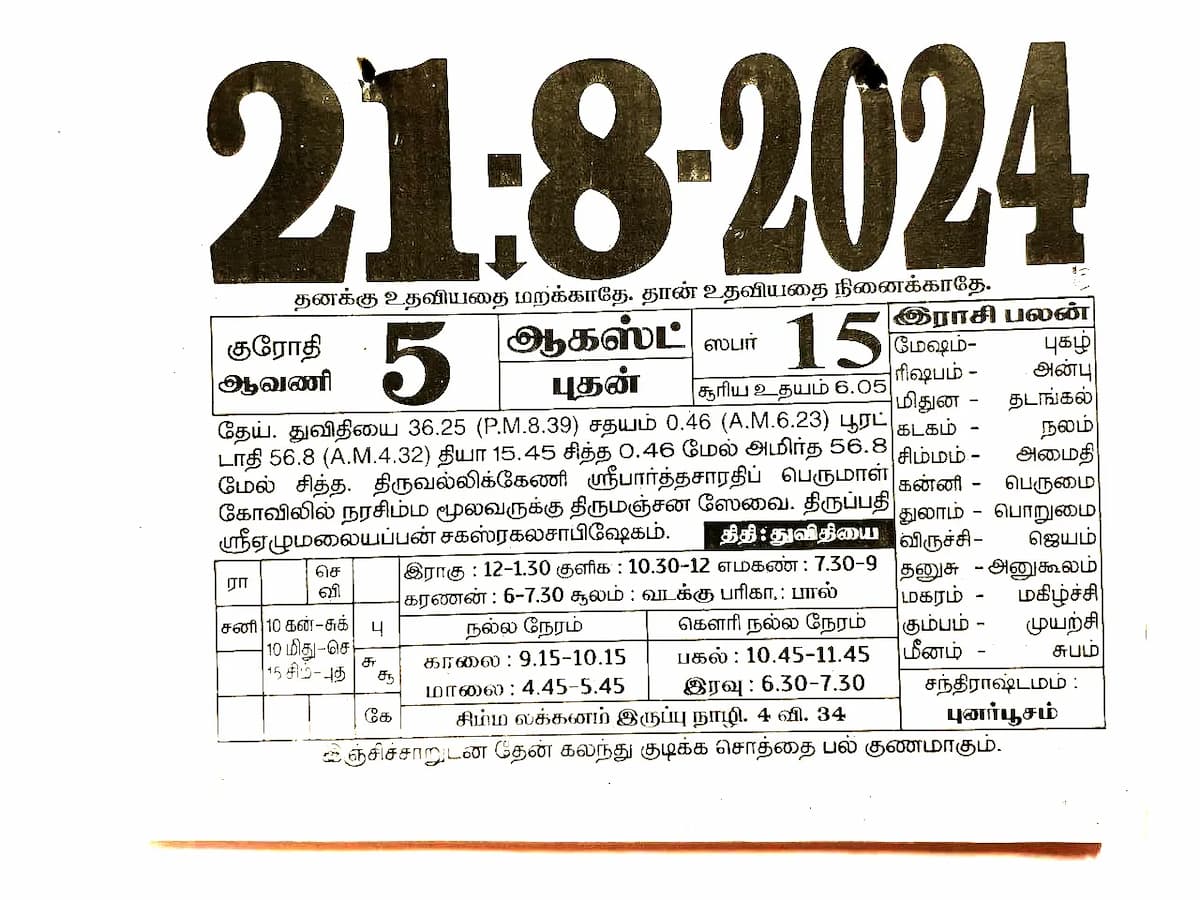 21-8-2024
தனக்கு உதவியதை மறக்காதே. தான் உதவியதை நினைக்காதே.
குரோதி
ஆவணி
5
ஆகஸ்ட்
புதன்
ஸபர்
15
சூரிய உதயம் 6.05
தேய். துவிதியை 36.25 (P.M.8.39) சதயம் 0.46 (A.M.6.23) பூரட்
டாதி 56.8 (A.M.4.32) தியா 15.45 சித்த 0.46 மேல் அமிர்த 56.8
மேல் சித்த. திருவல்லிக்கேணி ஸ்ரீபார்த்தசாரதிப் பெருமாள்
கோவிலில் நரசிம்ம மூலவருக்கு திருமஞ்சன ஸேவை. திருப்பதி
ஸ்ரீஏழுமலையப்பன் சகஸ்ரகலசாபிஷேகம்.
திதி : துவிதியை
இராசி பலன்
மேஷம்- புகழ்
ரிஷபம் - அன்பு
மிதுன - தடங்கல்
கடகம் - நலம்
சிம்மம் - அமைதி
கன்னி - பெருமை
துலாம் - பொறுமை
விருச்சி- ஜெயம்
தனுசு - அனுகூலம்
மகரம் - மகிழ்ச்சி
கும்பம் - முயற்சி
மீனம் - சுபம்
சந்திராஷ்டமம் :
புனர்பூசம்
ரா
செ
வி
சனி
10 கன்-சுக்
10 மிது-செ
15 சிம்-புத
பு
சு
சூ
கே
இராகு : 12-1.30 குளிக : 10.30-12 எமகண் : 7.30-9
கரணன் : 6-7.30 சூலம் : வடக்கு பரிகா.: பால்
நல்ல நேரம்
கௌரி நல்ல நேரம்
காலை : 9.15-10.15
பகல் : 10.45-11.45
மாலை : 4.45-5.45
இரவு : 6.30-7.30
சிம்ம லக்கனம் இருப்பு நாழி. 4 வி. 34
இஞ்சிச்சாறுடன தேன் கலந்து குடிக்க சொத்தை பல் குணமாகும்.